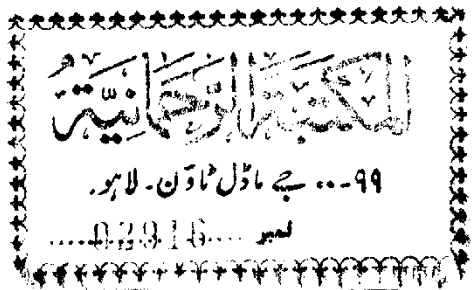 المکتبۃ الرحمانیۃ
۹۹۔۔۔ جے ماڈل ٹاؤن۔ لاہور
نمبر ....02816....